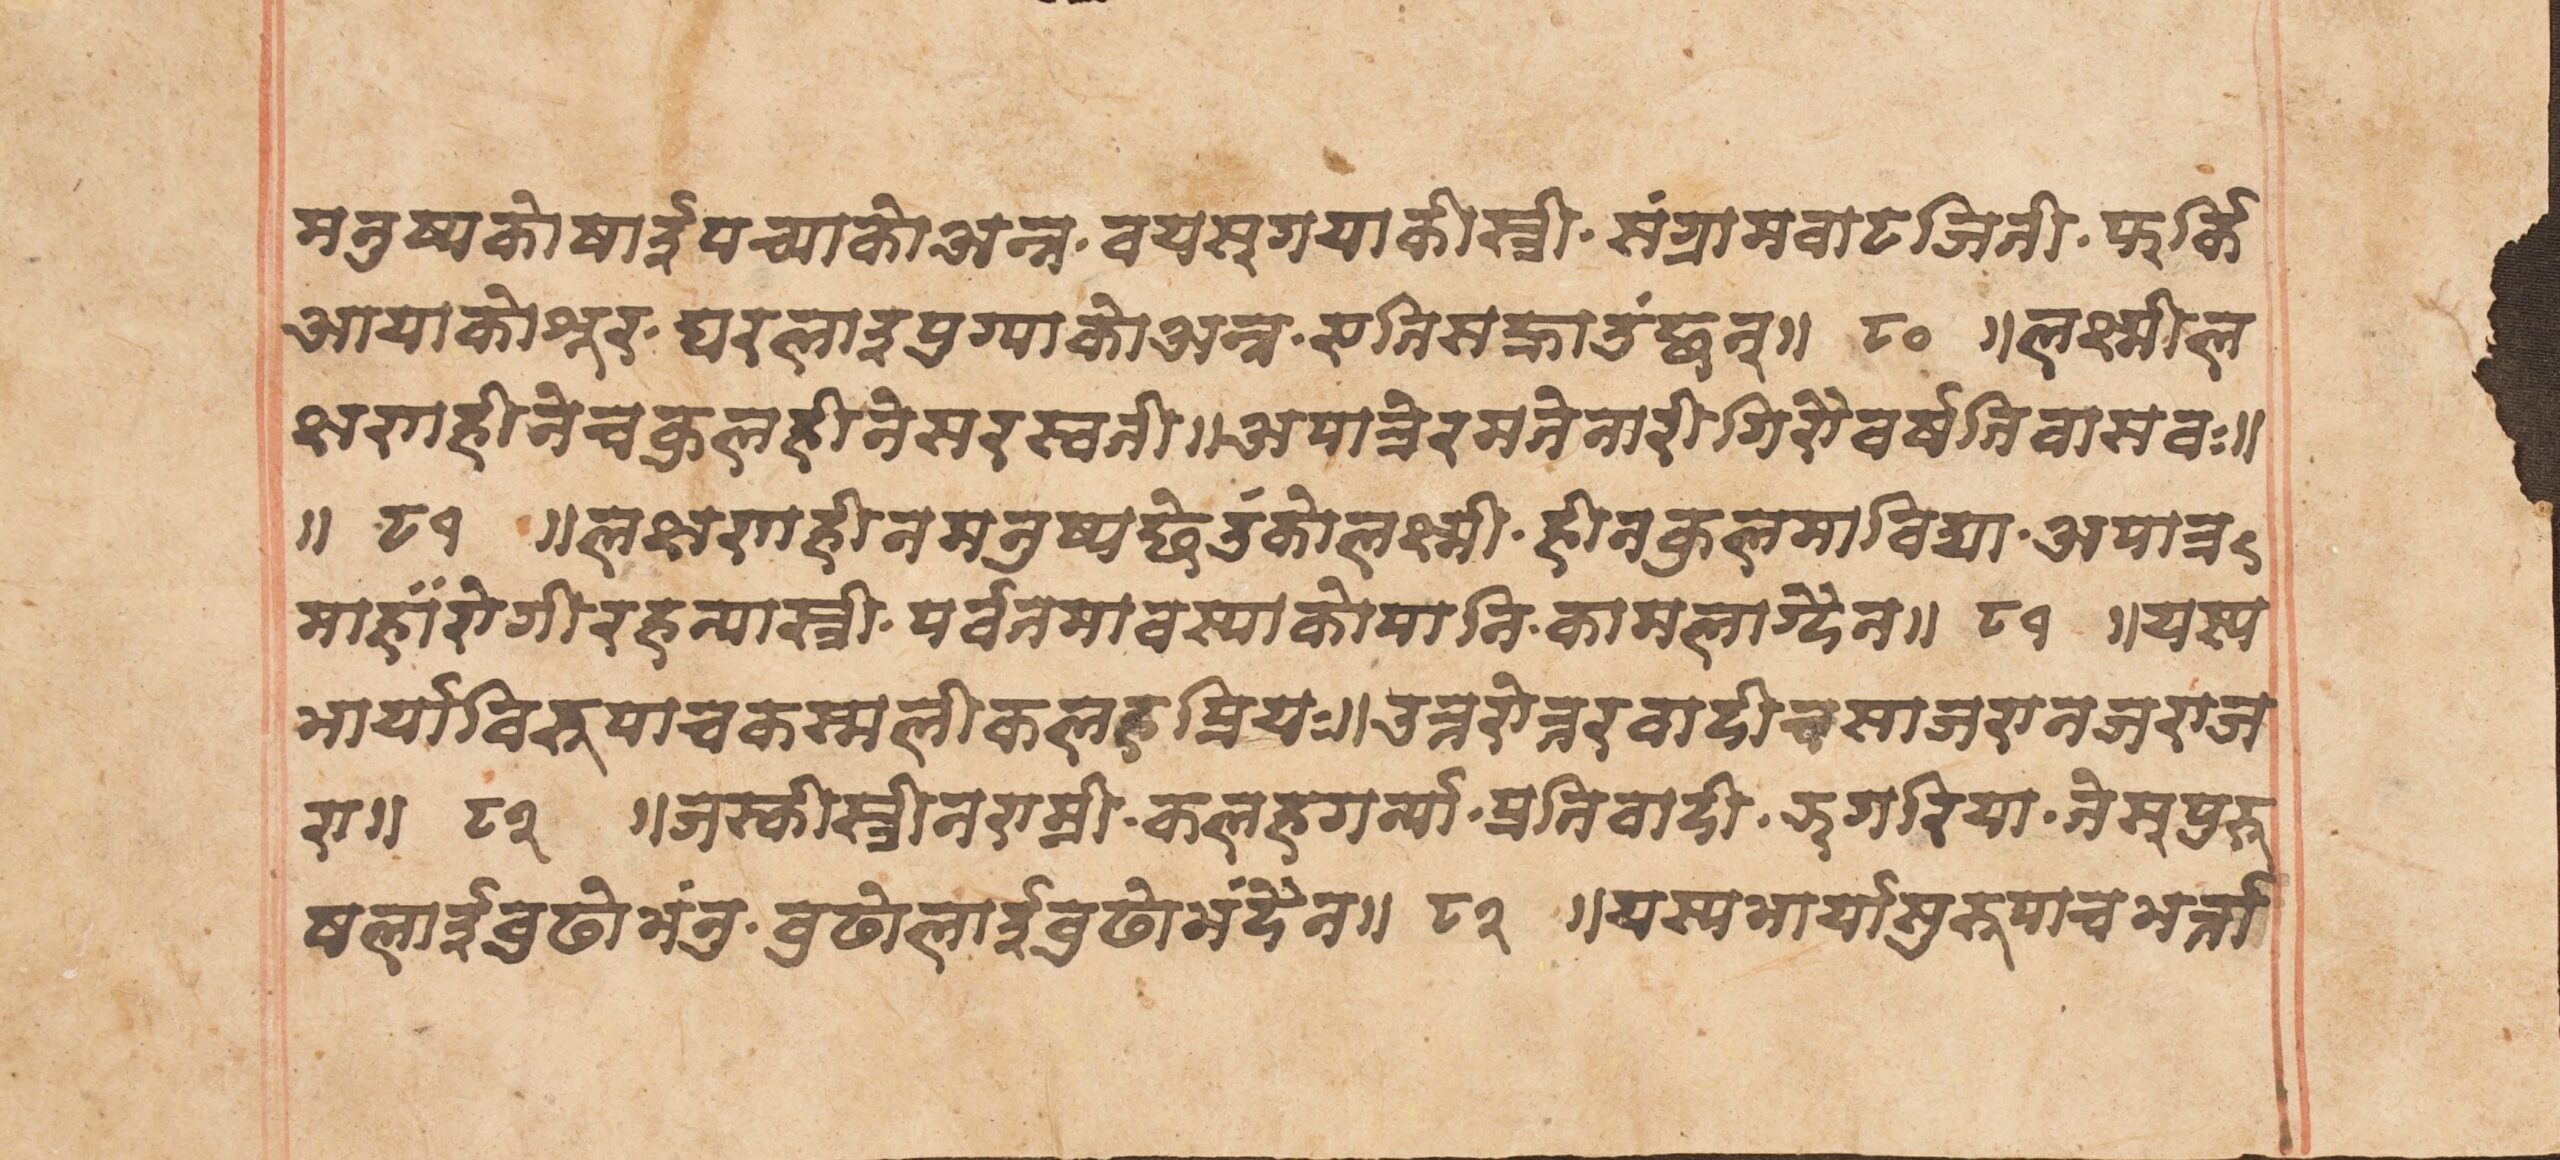 मनुष्यकोषाईपच्याकोअन्न॰ वयस्गयाकीस्त्री॰ संग्रामवाटजिती॰ फर्कि
आयाकोशूर॰ घरलाइपुग्याकोअन्न॰ एतिसह्माउंछन्॥ ८० ॥लक्ष्मील
क्षणहीनेचकुलहीनेसरस्वती॥अपात्रेरमतेनारीगिरौवर्षतिवासवः॥
॥ ८१ ॥लक्षणहीनमनुष्यछेउंकोलक्ष्मी॰ हीनकुलमाविद्या॰ अपात्रऽ
माहाँरोगीरहन्यास्त्री॰ पर्वतमावस्याकोपानि॰ कामलाग्दैन॥ ८१ ॥यस्य
भार्याविरूपाचकस्मलीकलहप्रियः॥उत्तरोत्तरवादीचसाजरानजराज
रा॥ ८२ ॥जस्कीस्त्रीनराम्री॰ कलहगर्न्या॰ प्रतिवादी॰ झगरिया॰ तेस्पुरू
षलाईवुढोभंनु॰ वुढोलाईवुढोभंदैन॥ ८२ ॥यस्यभार्यासुरूपाचभर्त्ता